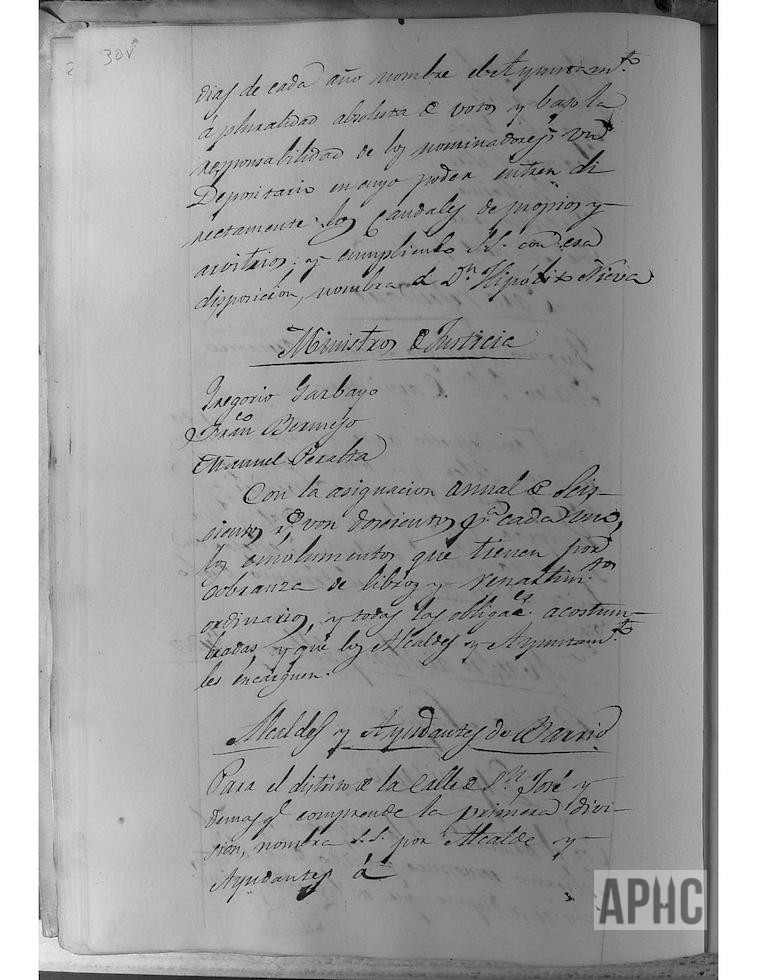 30v
dias de cada año nombre el Ayuntam.to
á pluralidad absoluta de votos y bajo la
responsabilidad de los nominadores, un
Depositario en cuyo poder entren di
rectamente los Caudales de propios y
arvitrios: y cumpliendo S.S. con esa
disposicion, nombra á D.n Hipólito Nieva
Ministros de Justicia
Gregorio Garbayo
Fran.co Bermejo
Manuel Peralta
Con la asignacion annal de Seis-
cientos r.s von doscientos p.a cada uno,
los emolumentos que tienen por
cobranza de libros y remartim.tos
ordinarios, y todas las obligac.es acostum-
bradas y que los Alcaldes y Ayuntam.to
les encarguen.
Alcaldes y Ayudantes de Barrio
Para el distrito de la Calle de S.n José y
demas q.e comprende la primera divi-
sion, nombra S.S. por Alcalde y
Ayudantes á
APHC